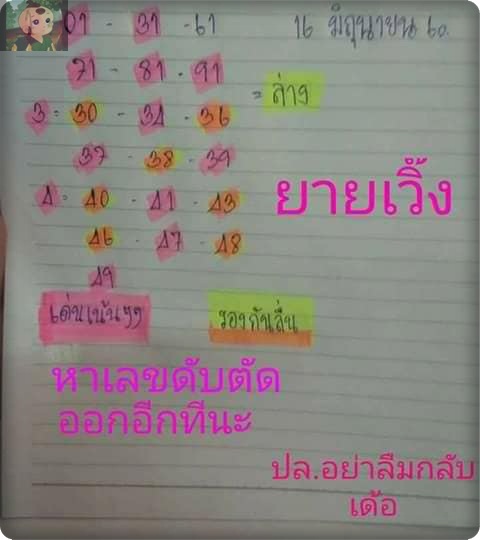 01 - 31 - 61 16 มิถุนายน 60.
71 - 81 - 91
= ล่าง
3 = 30 - 34 - 36
37 - 38 - 39
4 = 40 - 41 - 43
ยายเวิ้ง
46 - 47 - 48
49
เด่นเน้นๆๆ รองกันลื่น
หาเลขดับตัด
ออกอีกทีนะ
ปล.อย่าลืมกลับ
เด้อ